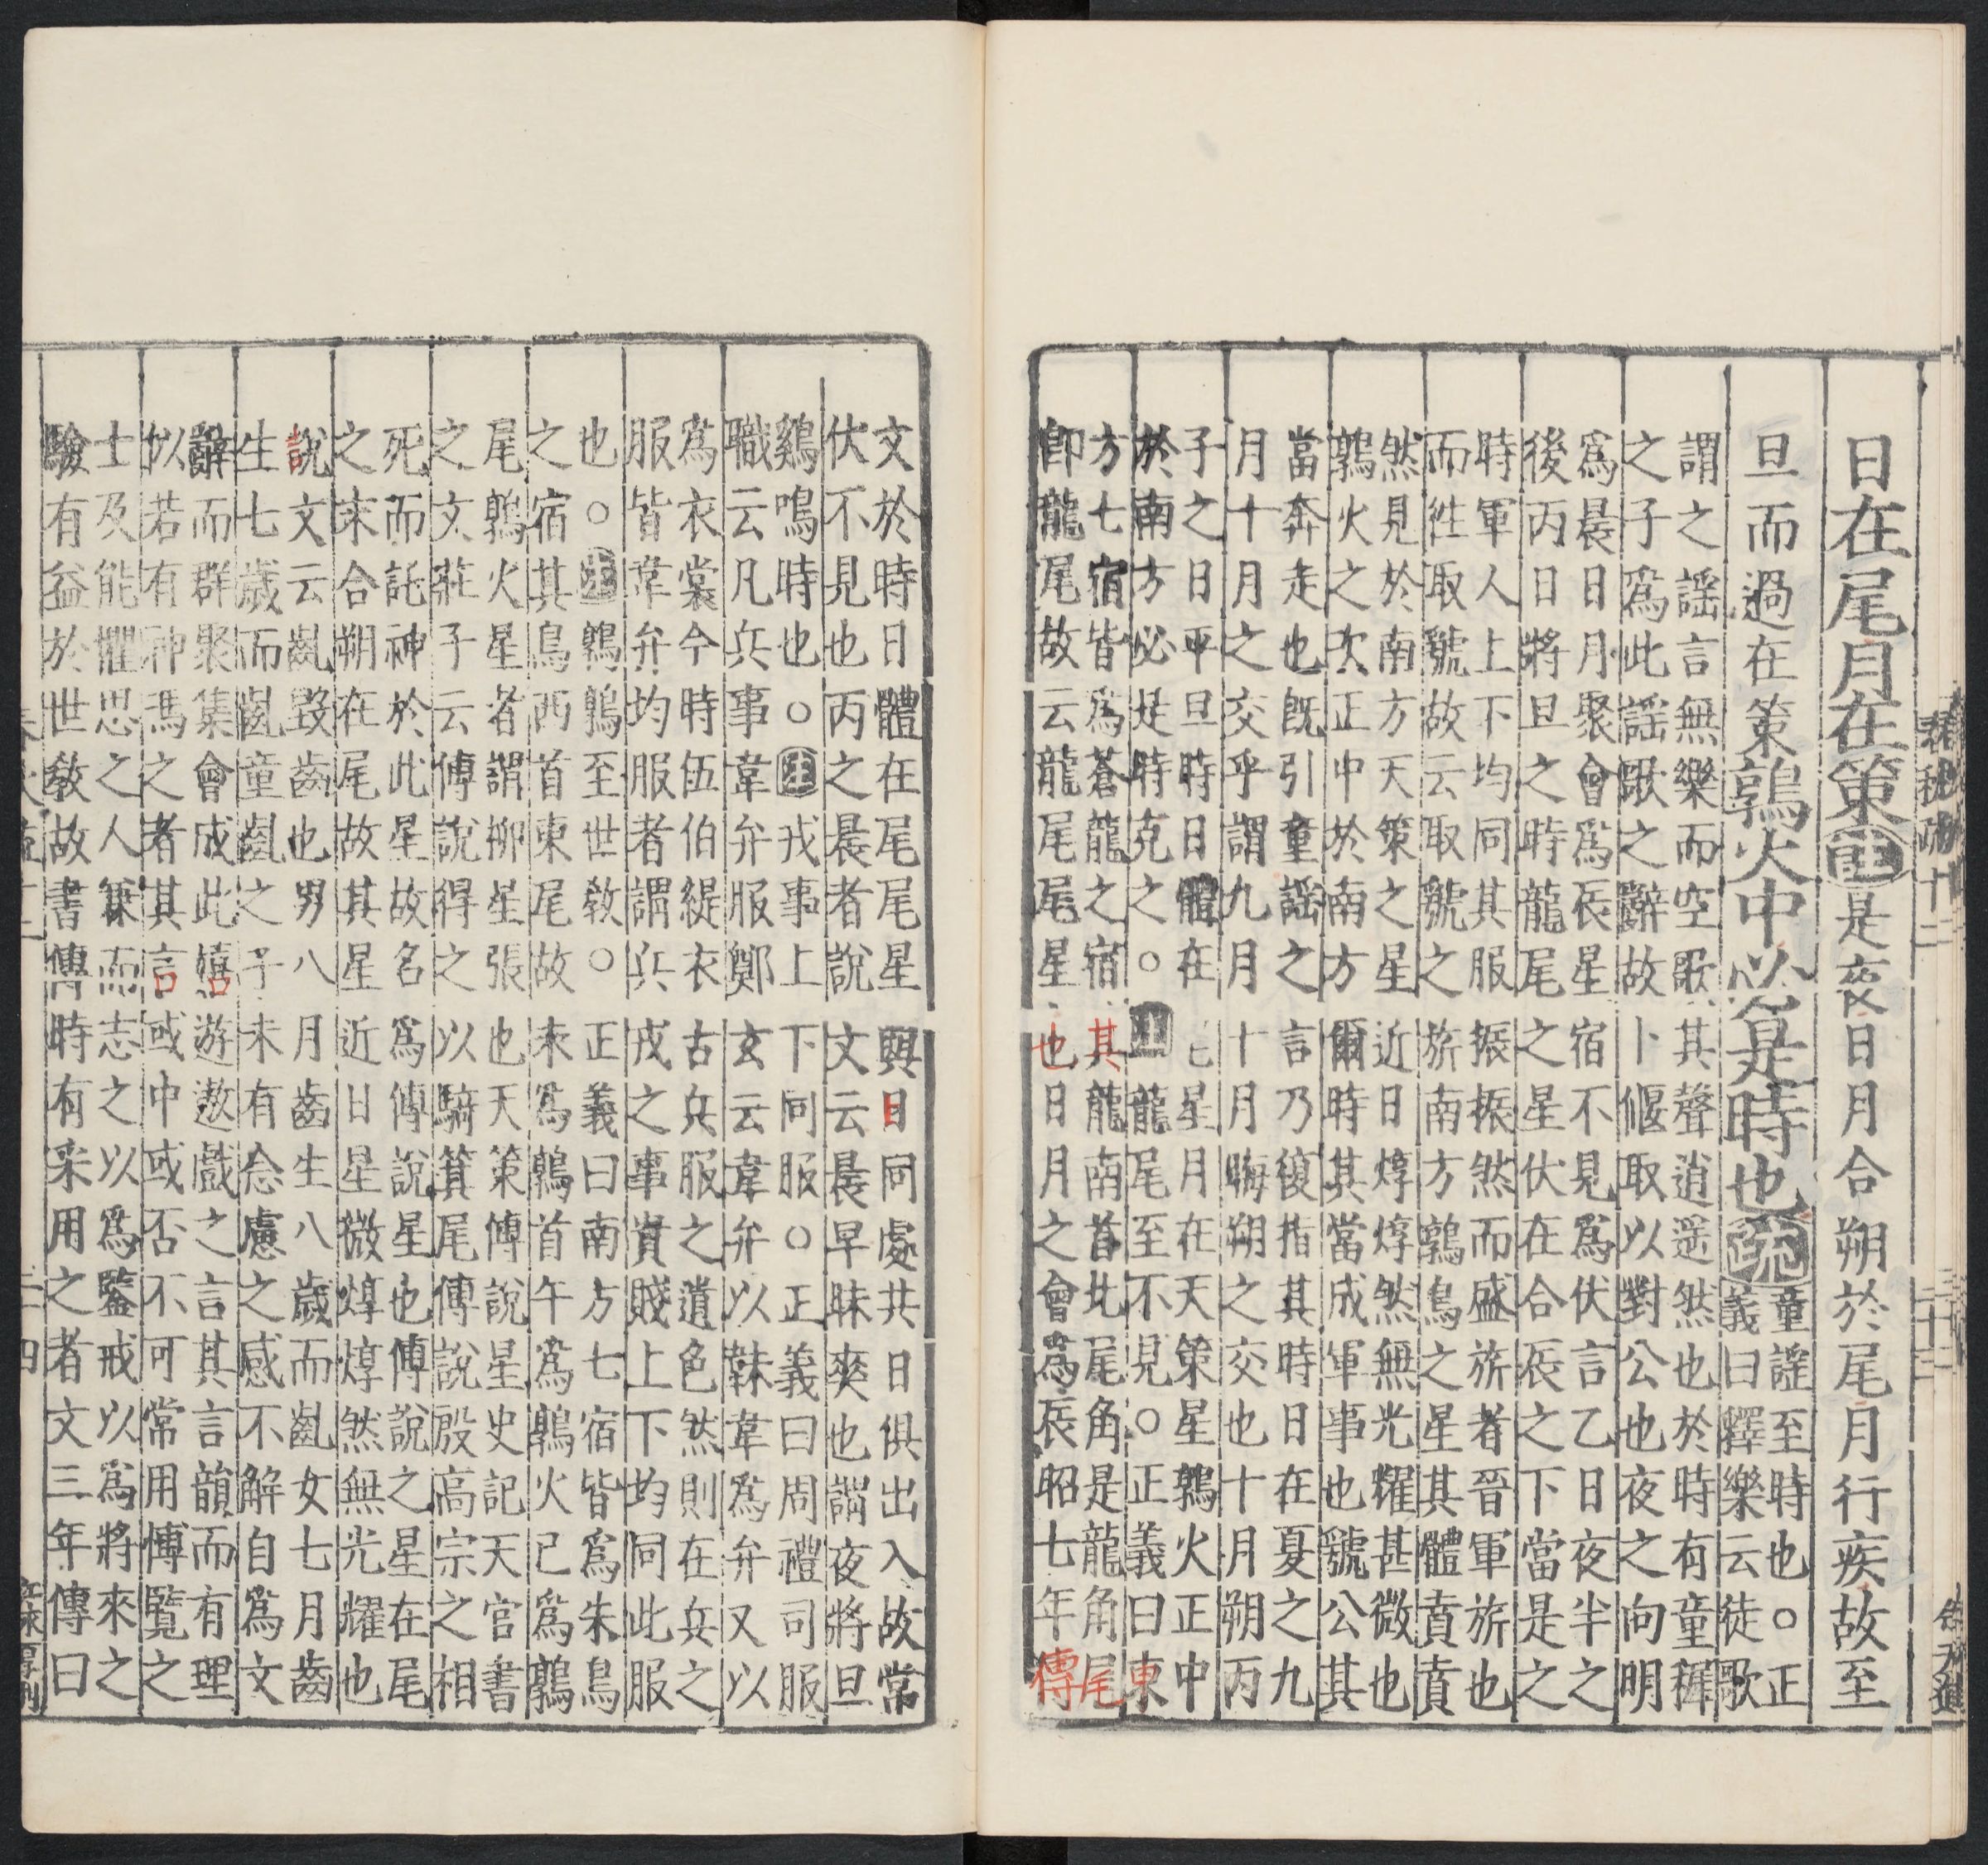 日在尾月在策注是夜日月合朔於尾月行疾故至
旦而過在策鶉火中必是時也疏童謡至時也○正
義曰釋樂云徒歌
謂之謡言無樂而空歌其聲逍遥然也於時有童穉
之子爲此謡歌之辭故卜偃取以對公也夜之向明
爲晨日月聚會爲辰星宿不見爲伏言乙日夜半之
後丙日將旦之時龍尾之星伏在合辰之下當是之
時軍人上下均同其服振振然而盛旂者晉軍旂也
而徃取虢故云取虢之旂南方鶉鳥之星其體賁賁
然見於南方天策之星近日焞焞然無光耀甚微也
鶉火之次正中於南方爾時其當成軍事也虢公其
當奔走也旣引童謡之言乃復指其時日在夏之九
月十月之交乎謂九月十月晦朔之交也十月朔丙
子之日平旦時日體在星月在天策星鶉火正中
於南方必是時克之○注龍尾至不見○正義曰東
方七宿皆爲蒼龍之宿其龍南首北尾角是龍角尾
卽龍尾故云龍尾尾星也日月之會爲辰昭七年傳
文於時日體在尾尾星與日同處共日俱出入故常
伏不見也丙之晨者說文云晨早昧爽也謂夜將旦
鷄鳴時也○注戎事上下同服○正義曰周禮司服
職云凡兵事韋弁服鄭玄云韋弁以韎韋爲弁又以
爲衣裳今時伍伯緹衣古兵服之遺色然則在兵之
服皆韋弁均服者謂兵戎之事貴賤上下均同此服
也○注鶉鶉至世敎○正義曰南方七宿皆爲朱鳥
之宿其鳥西首東尾故未爲鶉首午爲鶉火巳爲鶉
尾鶉火星者謂柳星張也天策傅說星史記天官書
之文莊子云傅說得之以騎箕尾傅說殷高宗之相
死而託神於此星故名爲傅說星也傅說之星在尾
之末合朔在尾故其星近日星微焞焞然無光耀也
說文云齔毀齒也男八月齒生八歲而齔女七月齒
生七歲而齔童齔之子未有念慮之感不解自爲文
辭而群聚集會成此嬉游遨戲之言其言韻而有理
似若有神馮之者其言或中或否不可常用博覽之
士及能懼思之人兼而志之以爲鑒戒以爲將來之
驗有益於世敎故書傳時有采用之者文三年傳曰